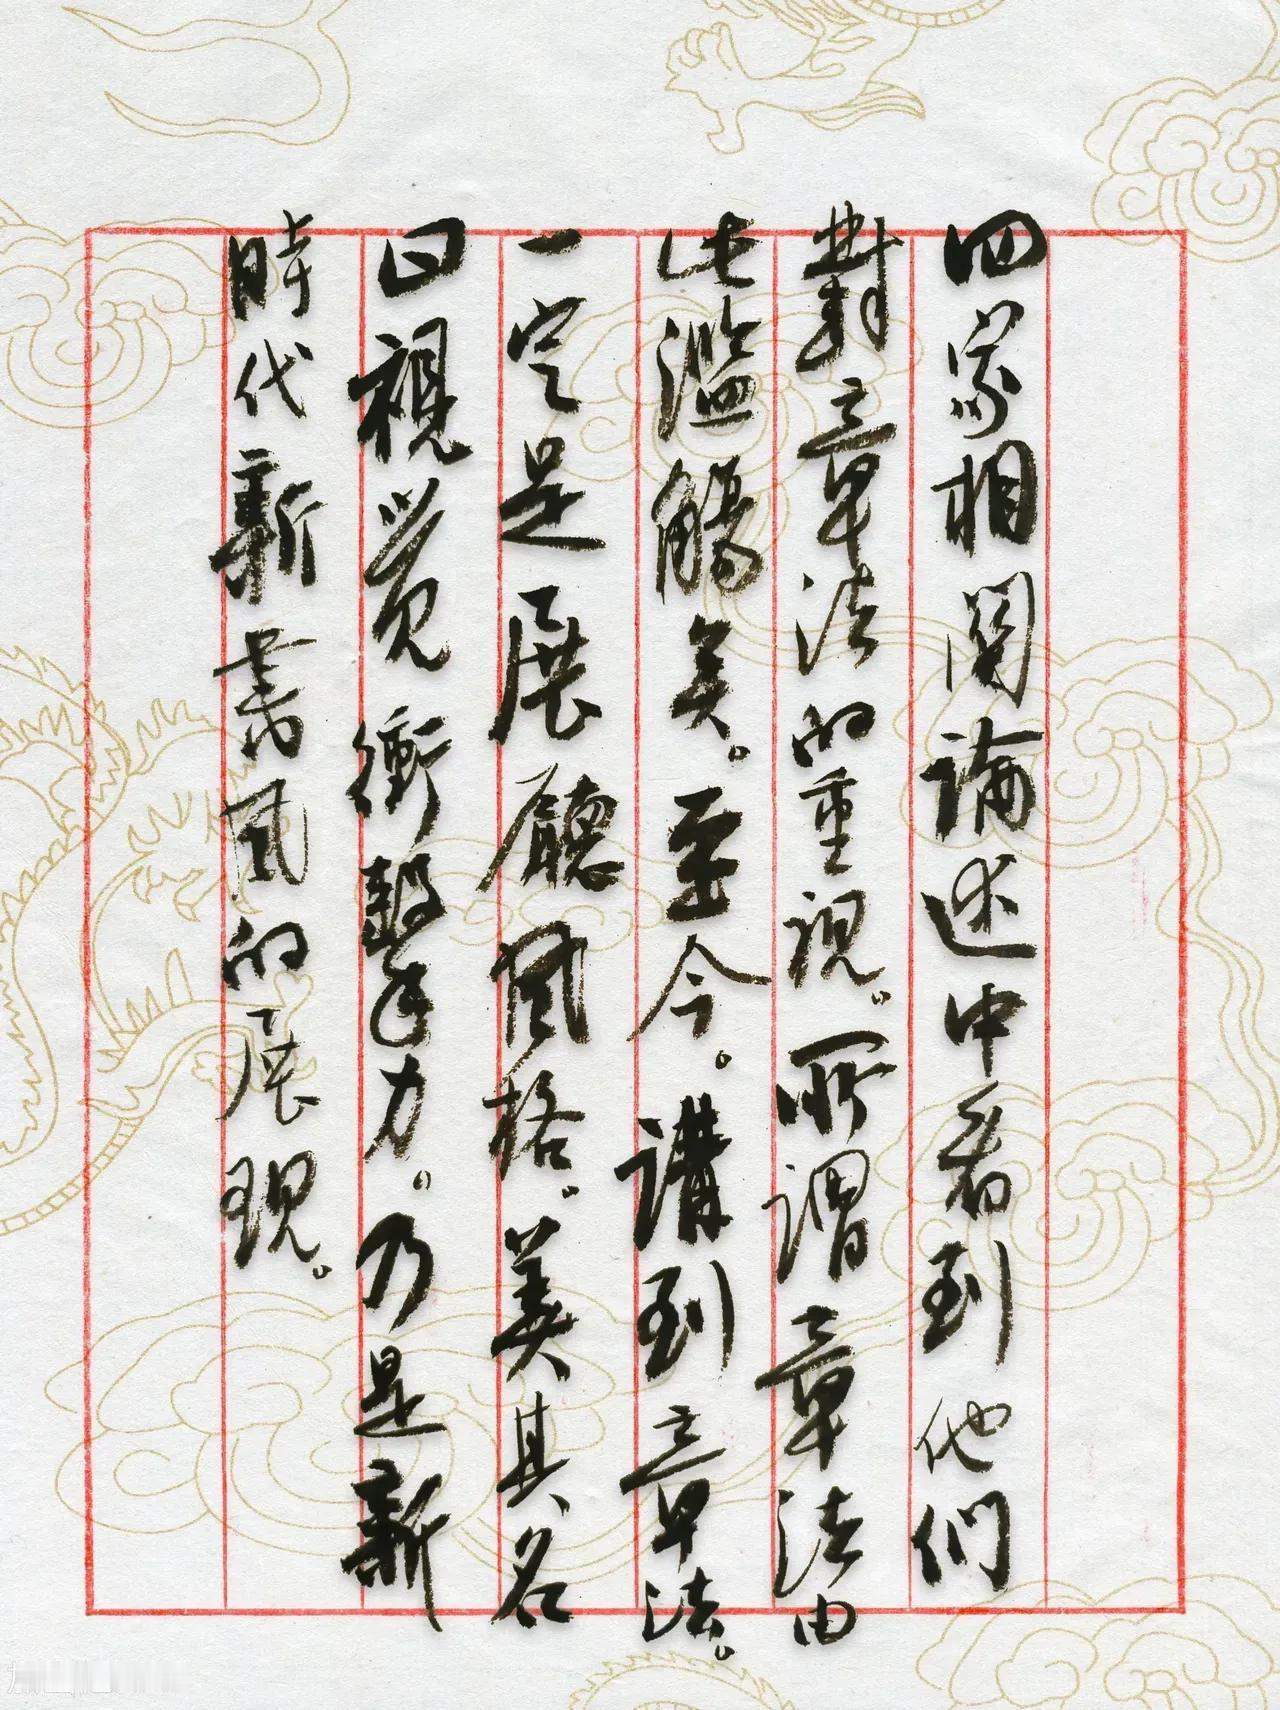 四家相関論述中看到他們
對章法的重視。所謂章法由
此濫觴矣。至今。講到章法。
一定是展廳風格。美其名
曰視覚衝擊力。乃是新
時代新書風的展現。